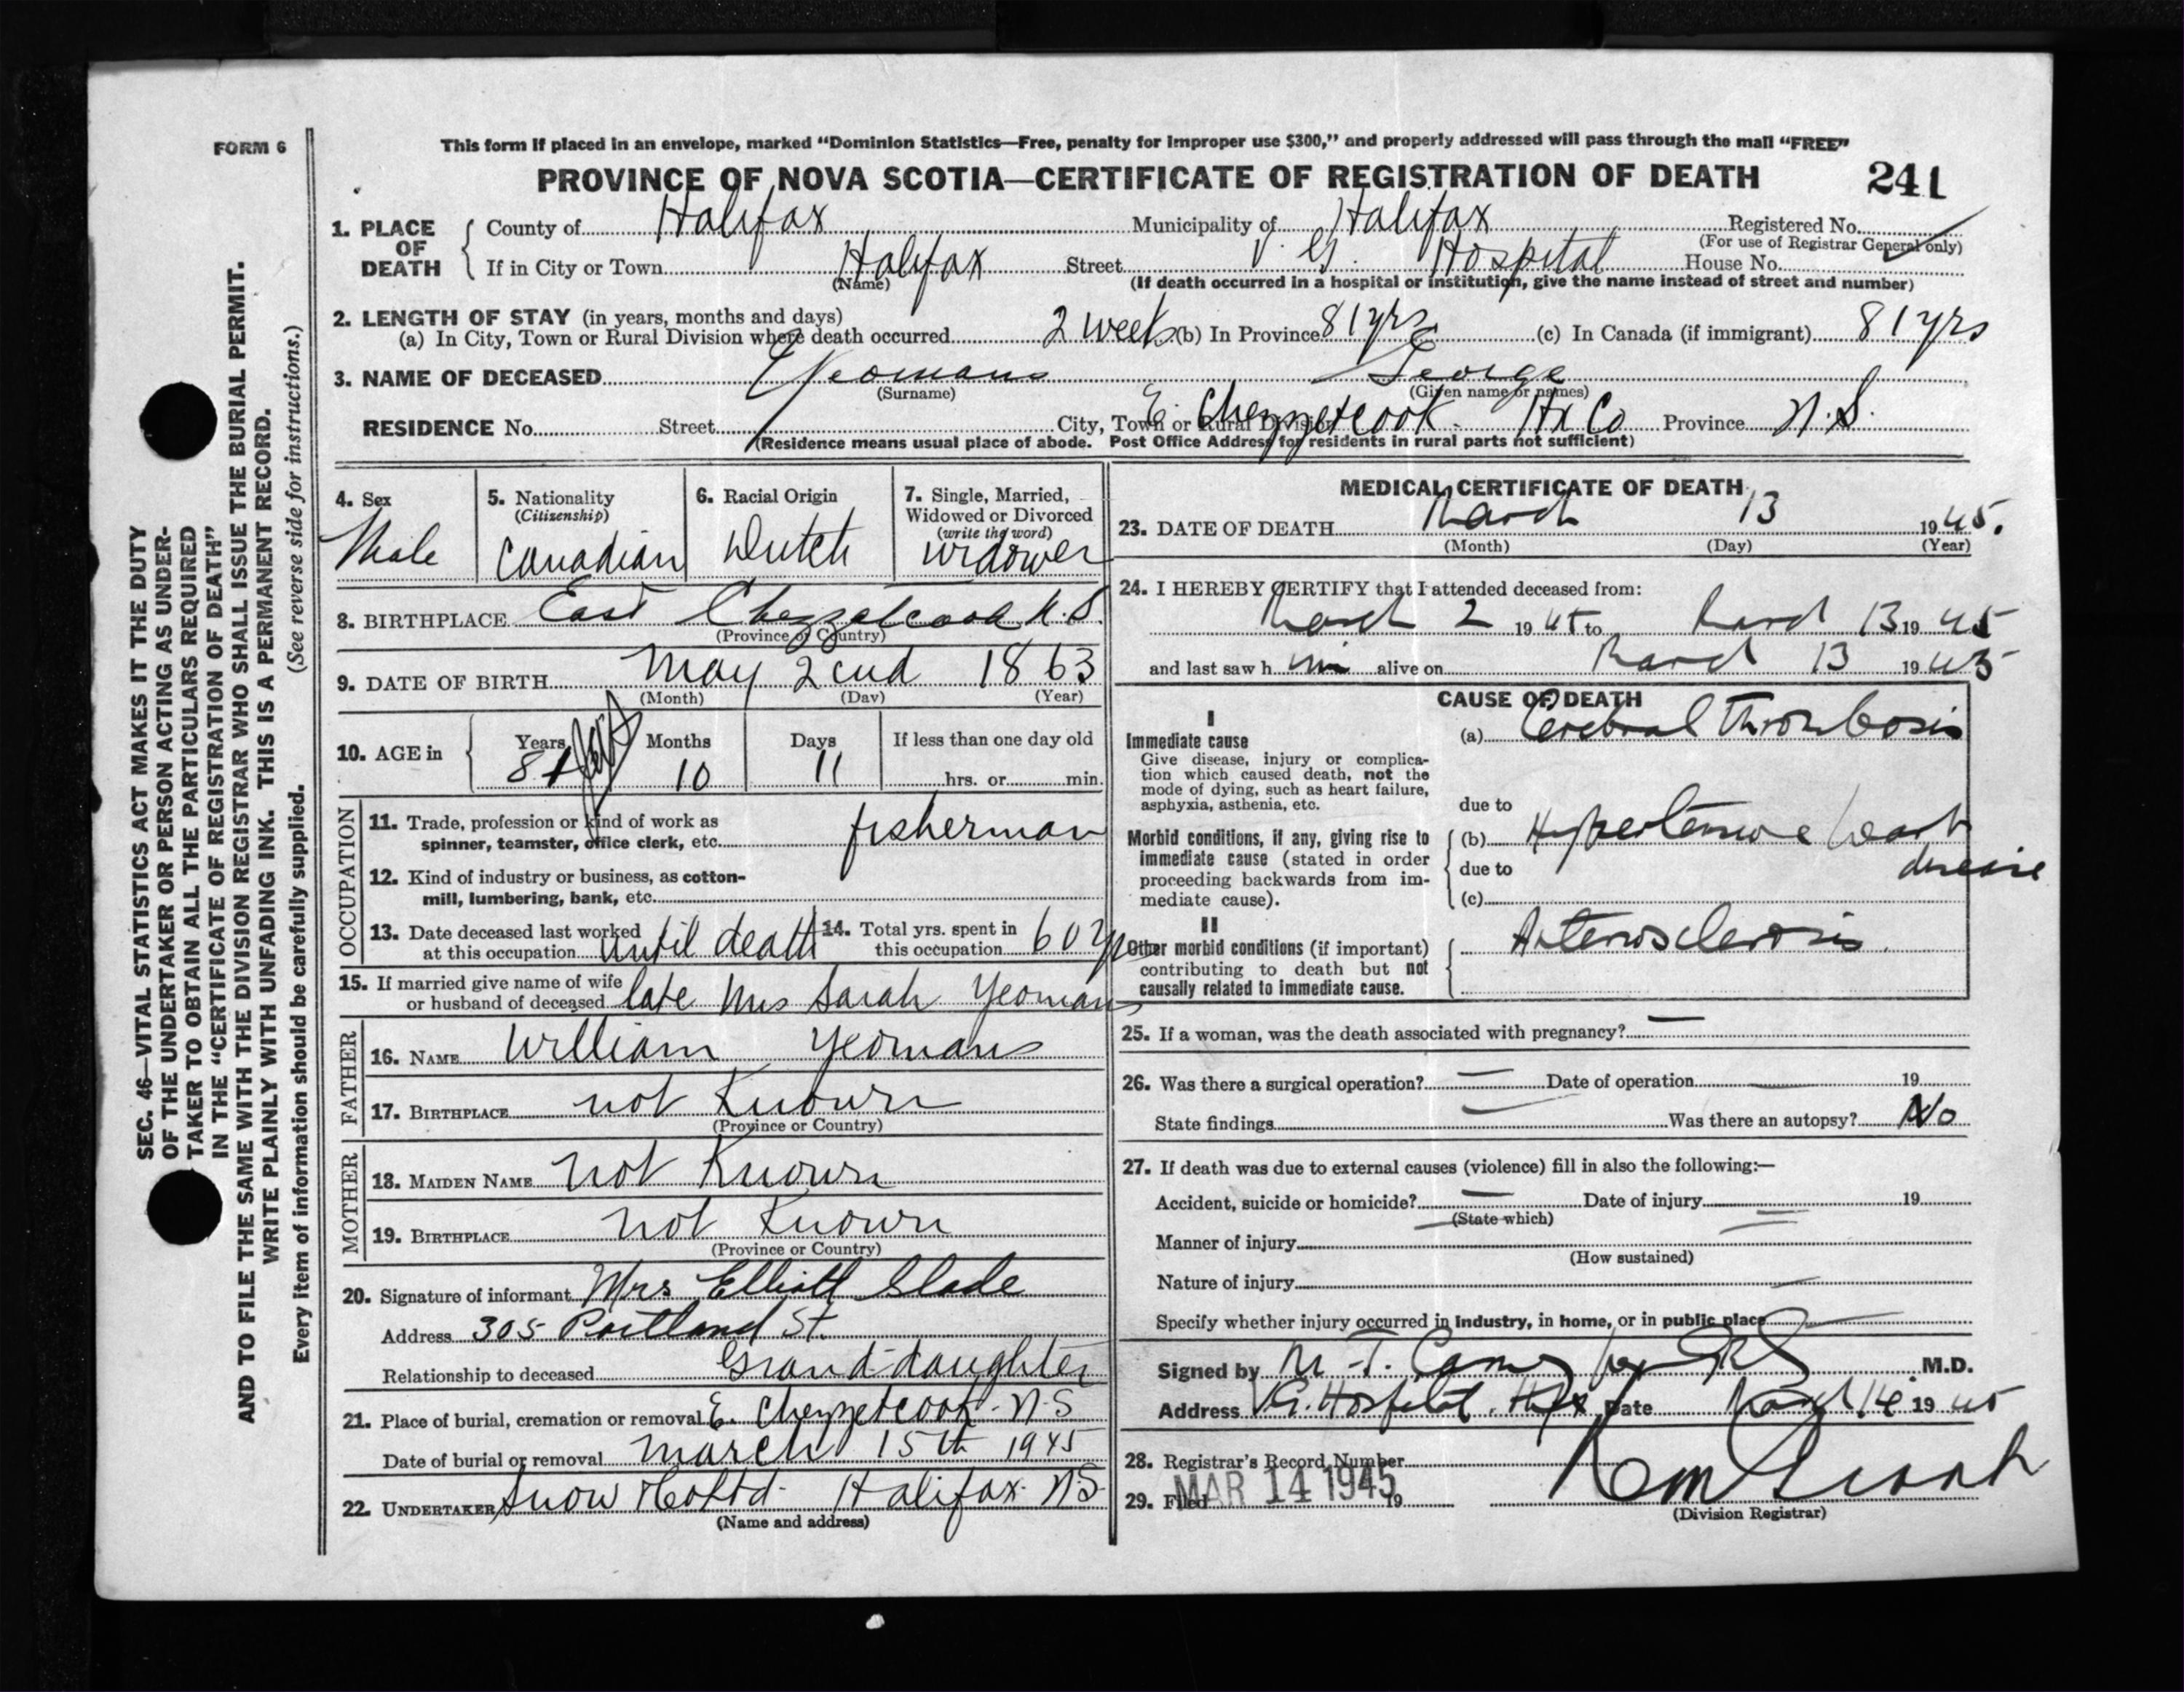 FORM 6
This form if placed in an envelope, marked “Dominion Statistics—Free, penalty for improper use $300,” and properly addressed will pass through the mail “FREE”
PROVINCE OF NOVA SCOTIA—CERTIFICATE OF REGISTRATION OF DEATH 241
1. PLACE OF DEATH County of Halifax Municipality of Halifax Registered No.
(For use of Registrar General only)
If in City or Town Halifax Street V. G. Hospital House No.
(Name) (If death occurred in a hospital or institution, give the name instead of street and number)
2. LENGTH OF STAY (in years, months and days)
(a) In City, Town or Rural Division where death occurred 2 weeks (b) In Province 81 yrs (c) In Canada (if immigrant) 81 yrs
3. NAME OF DECEASED Yeomans George
(Surname) (Given name or names)
RESIDENCE No. Street City, Town or Rural Division E. Chezzetcook - Hx Co Province N.S.
(Residence means usual place of abode. Post Office Address for residents in rural parts not sufficient)
4. Sex Male
5. Nationality (Citizenship) Canadian
6. Racial Origin Dutch
7. Single, Married, Widowed or Divorced (write the word) widower
8. BIRTHPLACE East Chezzetcook N.S.
(Province or Country)
9. DATE OF BIRTH May 2cnd 1863
(Month) (Day) (Year)
10. AGE in Years 81 Months 10 Days 11 If less than one day old
hrs. or min.
OCCUPATION
11. Trade, profession or kind of work as
spinner, teamster, office clerk, etc. fisherman
12. Kind of industry or business, as cotton-
mill, lumbering, bank, etc.
13. Date deceased last worked
at this occupation until death
14. Total yrs. spent in
this occupation 60 yrs
15. If married give name of wife
or husband of deceased late Mrs Sarah Yeomans
FATHER
16. NAME William Yeomans
17. BIRTHPLACE not Known
(Province or Country)
MOTHER
18. MAIDEN NAME not Known
19. BIRTHPLACE not Known
(Province or Country)
20. Signature of informant Mrs Elliott Slade
Address 305 Portland St.
Relationship to deceased Grand-daughter
21. Place of burial, cremation or removal E. Chezzetcook - N-S
Date of burial or removal March 15th 1945
22. UNDERTAKER Snow & Co Ltd - Halifax - N-S-
(Name and address)
MEDICAL CERTIFICATE OF DEATH
23. DATE OF DEATH March 13 1945.
(Month) (Day) (Year)
24. I HEREBY CERTIFY that I attended deceased from:
March 2 1945 to March 13 1945
and last saw him alive on March 13 1945
CAUSE OF DEATH
I
Immediate cause
Give disease, injury or complica-
tion which caused death, not the
mode of dying, such as heart failure,
asphyxia, asthenia, etc.
(a) Cerebral Thrombosis
due to
Morbid conditions, if any, giving rise to
immediate cause (stated in order
proceeding backwards from im-
mediate cause).
(b) Hypertensive heart
disease
due to
(c)
II
Other morbid conditions (if important)
contributing to death but not
causally related to immediate cause.
Arteriosclerosis.
25. If a woman, was the death associated with pregnancy? —
26. Was there a surgical operation? — Date of operation — 19
State findings — Was there an autopsy? No
27. If death was due to external causes (violence) fill in also the following:—
Accident, suicide or homicide? — Date of injury 19
(State which)
Manner of injury
(How sustained)
Nature of injury
Specify whether injury occurred in industry, in home, or in public place
Signed by M.D.
Address V.G. Hospital, Hfx Date March 14 1945
28. Registrar's Record Number
29. Filed MAR 14 1945 19
(Division Registrar)
SEC. 46—VITAL STATISTICS ACT MAKES IT THE DUTY
OF THE UNDERTAKER OR PERSON ACTING AS UNDER-
TAKER TO OBTAIN ALL THE PARTICULARS REQUIRED
IN THE “CERTIFICATE OF REGISTRATION OF DEATH”
AND TO FILE THE SAME WITH THE DIVISION REGISTRAR WHO SHALL ISSUE THE BURIAL PERMIT.
WRITE PLAINLY WITH UNFADING INK. THIS IS A PERMANENT RECORD.
Every item of information should be carefully supplied. (See reverse side for instructions.)